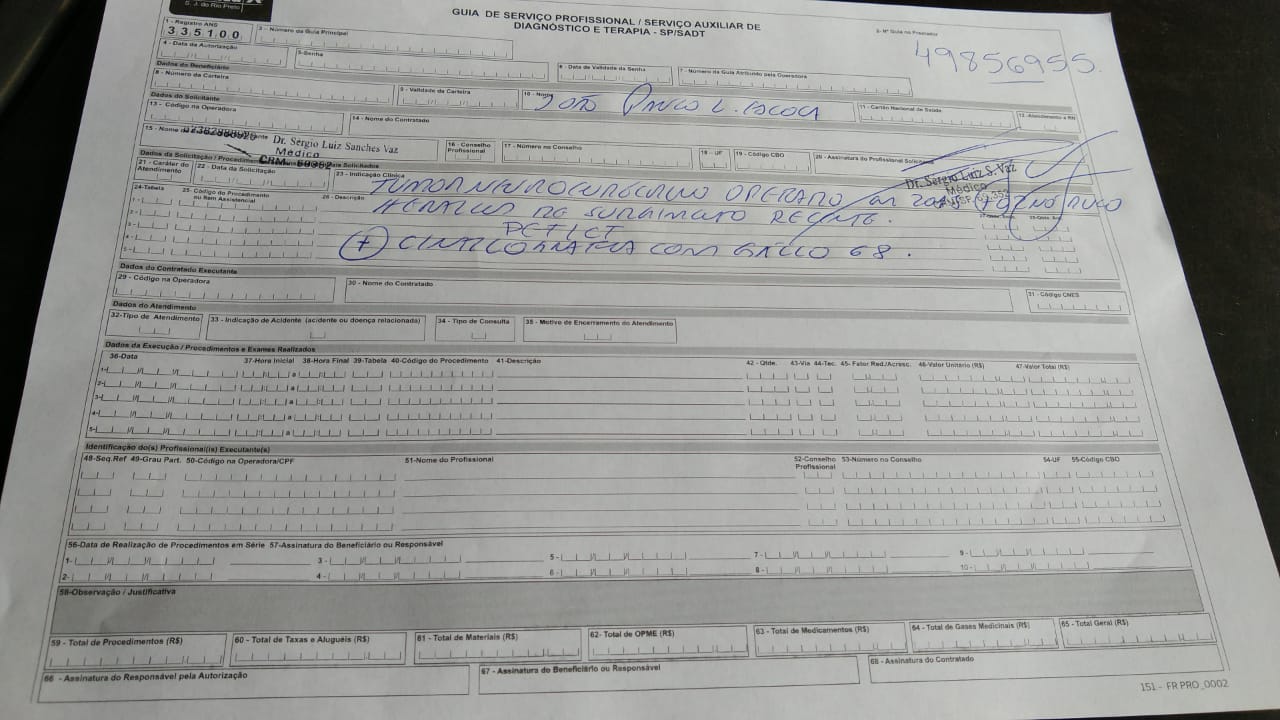 S. J. do Rio Preto
GUIA DE SERVIÇO PROFISSIONAL / SERVIÇO AUXILIAR DE
DIAGNÓSTICO E TERAPIA - SP/SADT
2- Nº Guia no Prestador
49856955.
1 - Registro ANS
335100
3 - Número da Guia Principal
4 - Data da Autorização
5-Senha
6 - Data de Validade da Senha
7 - Número da Guia Atribuído pela Operadora
Dados do Beneficiário
8 - Número da Carteira
9 - Validade da Carteira
10 - Nome
11 - Cartão Nacional de Saúde
12 -Atendimento a RN
Dados do Solicitante
13 - Código na Operadora
14 - Nome do Contratado
15 - Nome do
Dr. Sérgio Luiz Sanches Vaz
Médico
CRM.
16 - Conselho
Profissional
17 - Número no Conselho
18 - UF
19 - Código CBO
20 - Assinatura do Profissional Solicitante
Dr. Sérgio Luiz S. Vaz
Médico
Dados da Solicitação / Procedimentos
21 - Caráter do
Atendimento
22 - Data da Solicitação
23 - Indicação Clínica
OPERADO
24-Tabela
25- Código do Procedimento
ou Item Assistencial
26 - Descrição
DE SURGIMENTO RECENTE.
PET/CT
+ CINTILOGRAFIA COM GÁLIO 68.
1-
2-
3-
4-
5-
Dados do Contratado Executante
29 - Código na Operadora
30 - Nome do Contratado
31 - Código CNES
Dados do Atendimento
32-Tipo de Atendimento
33 - Indicação de Acidente (acidente ou doença relacionada)
34 - Tipo de Consulta
35 - Motivo de Encerramento do Atendimento
Dados da Execução / Procedimentos e Exames Realizados
36-Data 37-Hora Inicial 38-Hora Final 39-Tabela 40-Código do Procedimento 41-Descrição 42 - Qtde. 43-Via 44-Tec. 45- Fator Red./Acresc. 46-Valor Unitário (R$) 47-Valor Total (R$)
1- a
2- a
3- a
4- a
5- a
Identificação do(s) Profissional(is) Executante(s)
48-Seq.Ref 49-Grau Part. 50-Código na Operadora/CPF 51-Nome do Profissional 52-Conselho Profissional 53-Número no Conselho 54-UF 55-Código CBO
56-Data de Realização de Procedimentos em Série 57-Assinatura do Beneficiário ou Responsável
1- 3 - 5 - 7 - 9 -
2- 4 - 6 - 8 - 10 -
58-Observação / Justificativa
59 - Total de Procedimentos (R$)
60 - Total de Taxas e Aluguéis (R$)
61 - Total de Materiais (R$)
62- Total de OPME (R$)
63 - Total de Medicamentos (R$)
64 - Total de Gases Medicinais (R$)
65 - Total Geral (R$)
66 - Assinatura do Responsável pela Autorização
67 - Assinatura do Beneficiário ou Responsável
68 - Assinatura do Contratado
151 - FR PRO_0002